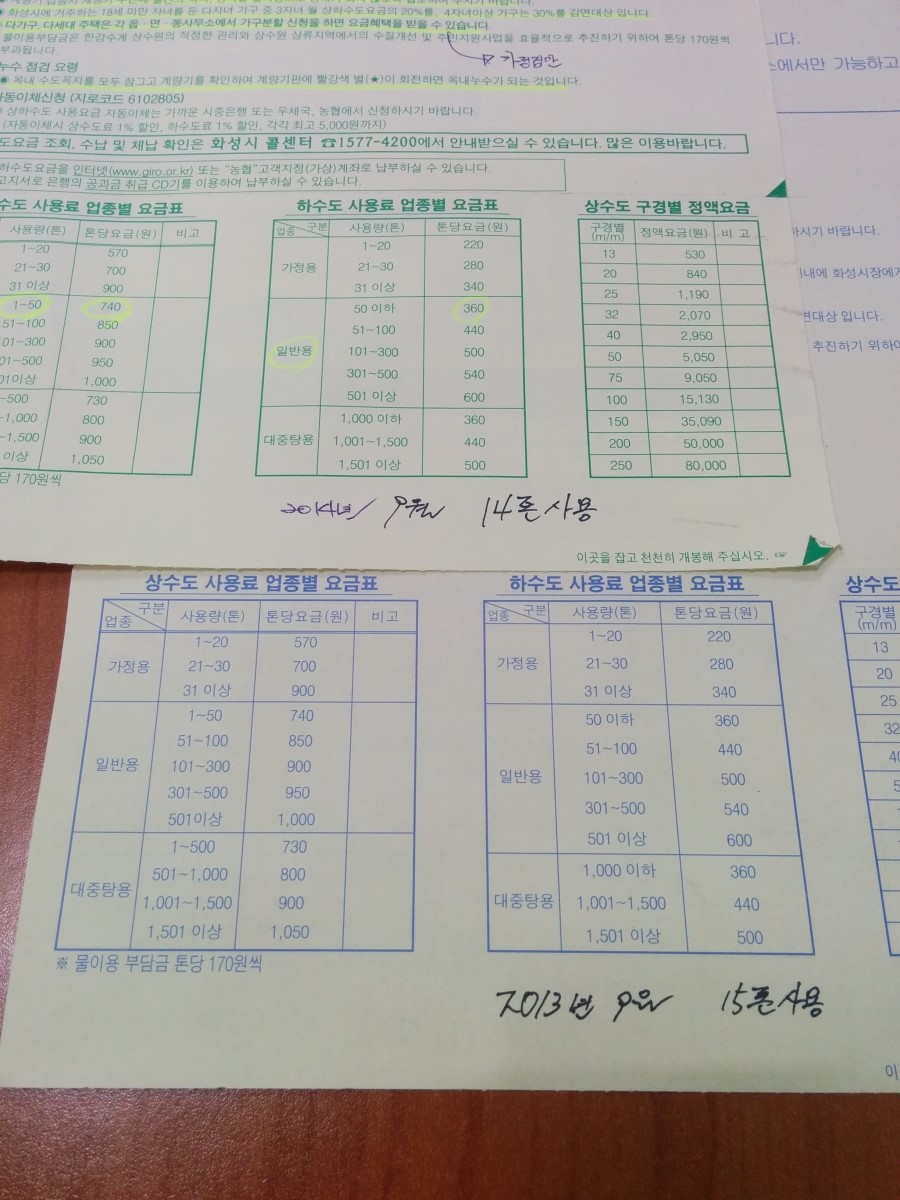 화성시에 거주하는 18세 미만 자녀를 둔 다자녀 가구 중 3자녀 월 상하수도요금의 20%를, 4자녀이상 가구는 30%를 감면대상 입니다.
다가구, 다세대 주택은 각 읍·면·동사무소에서 가구분할 신청을 하면 요금혜택을 받을 수 있습니다.
물이용부담금은 한강수계 상수원의 적정한 관리와 상수원 상류지역에서의 수질개선 및 주민지원사업을 효율적으로 추진하기 위하여 톤당 170원씩
부과됩니다.
가정집만
누수 점검 요령
● 옥내 수도꼭지를 모두 잠그고 계량기를 확인하여 계량기판에 빨강색 별(★)이 회전하면 옥내누수가 되는 것입니다.
자동이체신청 (지로코드 6102805)
상하수도 사용요금 자동이체는 가까운 시중은행 또는 우체국, 농협에서 신청하시기 바랍니다.
(자동이체시 상수도료 1% 할인, 하수도료 1% 할인, 각각 최고 5,000원까지)
도요금 조회, 수납 및 체납 확인은 화성시 콜센터 ☎1577-4200에서 안내받으실 수 있습니다. 많은 이용바랍니다.
하수도요금을 인터넷(www.giro.or.kr) 또는 "농협"고객지정(가상)계좌로 납부하실 수 있습니다.
고지서로 은행의 공과금 취급 CD기를 이용하여 납부하실 수 있습니다.
수도 사용료 업종별 요금표
사용량(톤) 톤당요금(원) 비고
1~20 570
21~30 700
31 이상 900
1~50 740
51~100 850
101~300 900
01~500 950
01이상 1,000
~500 730
~1,000 800
~1,500 900
이상 1,050
당 170원씩
하수도 사용료 업종별 요금표
업종 구분 사용량(톤) 톤당요금(원)
가정용
1~20 220
21~30 280
31 이상 340
일반용
50 이하 360
51~100 440
101~300 500
301~500 540
501 이상 600
대중탕용
1,000 이하 360
1,001~1,500 440
1,501 이상 500
상수도 구경별 정액요금
구경별(m/m) 정액요금(원) 비 고
13 530
20 840
25 1,190
32 2,070
40 2,950
50 5,050
75 9,050
100 15,130
150 35,090
200 50,000
250 80,000
2014년 9월 14톤사용
이곳을 잡고 천천히 개봉해 주십시오. ☞
니다.
에서만 가능하고
하시기 바랍니다.
내에 화성시장에게
면대상 입니다.
추진하기 위하여
상수도 사용료 업종별 요금표
업종 구분 사용량(톤) 톤당요금(원) 비고
가정용
1~20 570
21~30 700
31 이상 900
일반용
1~50 740
51~100 850
101~300 900
301~500 950
501이상 1,000
대중탕용
1~500 730
501~1,000 800
1,001~1,500 900
1,501 이상 1,050
※ 물이용 부담금 톤당 170원씩
하수도 사용료 업종별 요금표
업종 구분 사용량(톤) 톤당요금(원)
가정용
1~20 220
21~30 280
31 이상 340
일반용
50 이하 360
51~100 440
101~300 500
301~500 540
501 이상 600
대중탕용
1,000 이하 360
1,001~1,500 440
1,501 이상 500
상수도
구경별(m/m)
13
20
25
32
2013년 9월 15톤사용
이